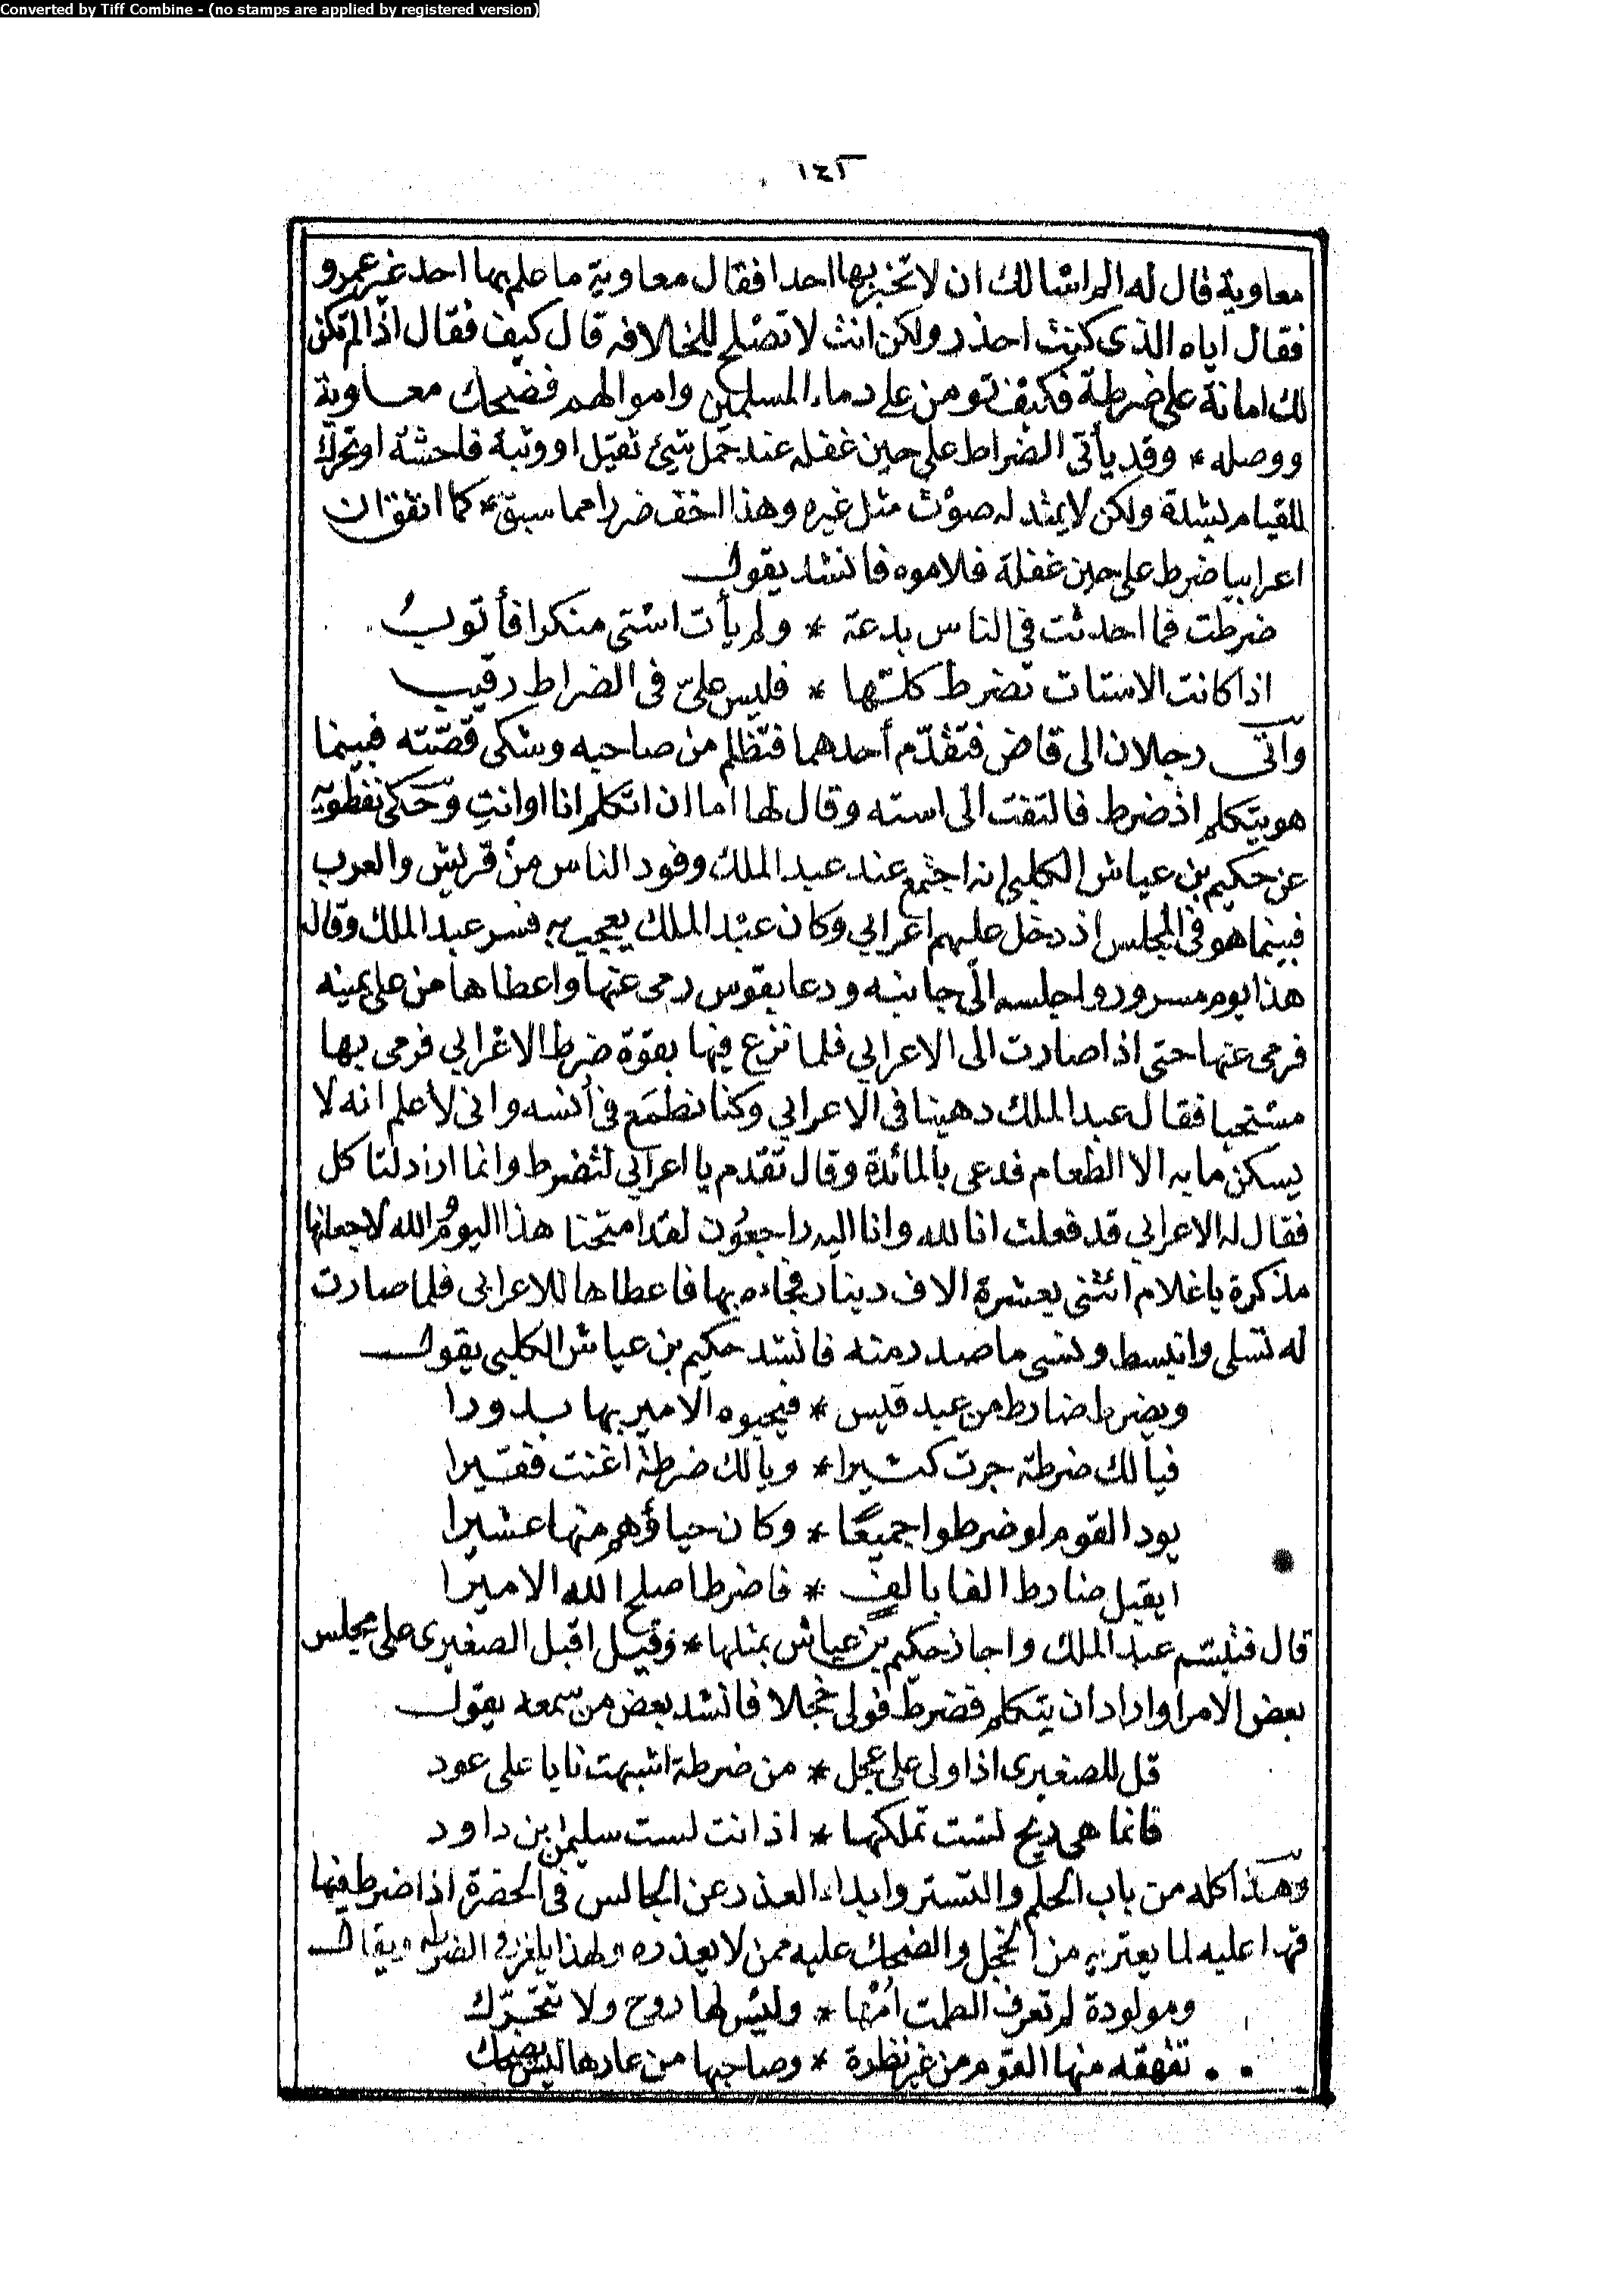 Converted by Tiff Combine - (no stamps are applied by registered version)
١٤٢
معاوية قال له الم اسالك ان لا تخبر بها احدا فقال معاوية ما علم بها احد غير عمرو
فقال اياه الذى كنت احذر ولكن انت لا تصلح للخلافه قال كيف فقال اذا لم تكن
لك امانة على ضرطة فكيف تومن على دماء المسلمين واموالهم فضحك معاوية
ووصله * وقد يأتى الضراط على حين غفله عند حمل شيئ ثقيل او وثبة فاحشة او تحرك
للقيام بشدة ولكن لا يمتد له صوت مثل غيره وهذا اخف ضررا مما سبق * كما اتفق ان
اعرابيا ضرط على حين غفلة فلاموه فانشد يقول
ضرطت فما احدثت فى الناس بدعة * ولم يأت استى منكرا فأتوبُ
اذا كانت الاستات تضرط كلتها * فليس علىّ فى الضراط رقيب
وأتى رجلان الى قاض فتقدّم أحدهما فتظلم من صاحبه وشكى قصّته فبينما
هو يتكلم اذ ضرط فالتفت الى استه وقال لها اما ان اتكلم انا او انتِ وحكى نفطويه
عن حكيم بن عياش الكلبى انه اجتمع عند عبد الملك وفود الناس من قريش والعرب
فبينما هو فى المجلس اذ دخل عليهم اعرابي وكان عبد الملك يعجب به فسر عبد الملك وقال
هذا يوم مسرور واجلسه الى جانبه ودعا بقوس رمى عنها واعطاها من على يمينه
فرمى عنها حتى اذا صارت الى الاعرابي فلما نزع فيها بقوة ضرط الاعرابي فرمى بها
مستحيا فقال عبد الملك دهينا فى الاعرابي وكنا نطمَع فى أنسه وانى لأعلم انه لا
يسكن ما به الا الطعام فدعى بالمائدة وقال تقدم يا اعرابي لتضرط وانما اراد لتاكل
فقال له الاعرابي قد فعلت انا لله وانا اليه راجعون لقد امتحنا هذا اليوم والله لاجعلنها
مذكرة يا غلام ائتنى بعشرة الاف دينار فجاءه بها فاعطاها للاعرابى فلما صارت
له تسلى وانبسط ونسى ما صدر منه فانشد حكيم بن عياش الكلبى يقول
ويضرط ضارط من عبد قيس * فيحبوه الامير بها بدورا
فيا لك ضرطة جرت كثيرا * ويا لك ضرطة اغنت فقيرا
يود القوم لو ضرطوا جميعًا * وكان حياؤهم منها عشيرا
ايقبل ضارط الفا بالفٍ * فاضرط اصلح الله الاميرا
قال فتبسّم عبد الملك واجاز حكيم بن عياش بمثلها * وقيل اقبل الصغيرى على مجلس
بعض الامرا واراد ان يتكلم فضرط فولى خجلا فانشد بعض من سمعه يقول
قل للصغيرى اذا ولى على عجل * من ضرطة اشبهت نايا على عود
فانما هى ريح لست تملكها * اذ انت لست سليمن بن داود
وهذا كله من باب الحلم والتستر وابداء العذر عن الجالس فى الحضرة اذا ضرط فيها
قهرا عليه لما يعتريه من الخجل والضحك عليه ممن لا يعذره ولهذا يلغز فى الضرطه ويقال
ومولودة لم تعرف الطمث أمّها * وليس لها روح ولا تتحرّك
تقهقه منها القوم من غير نظرة * وصاحبها من عارها ليس يضحك